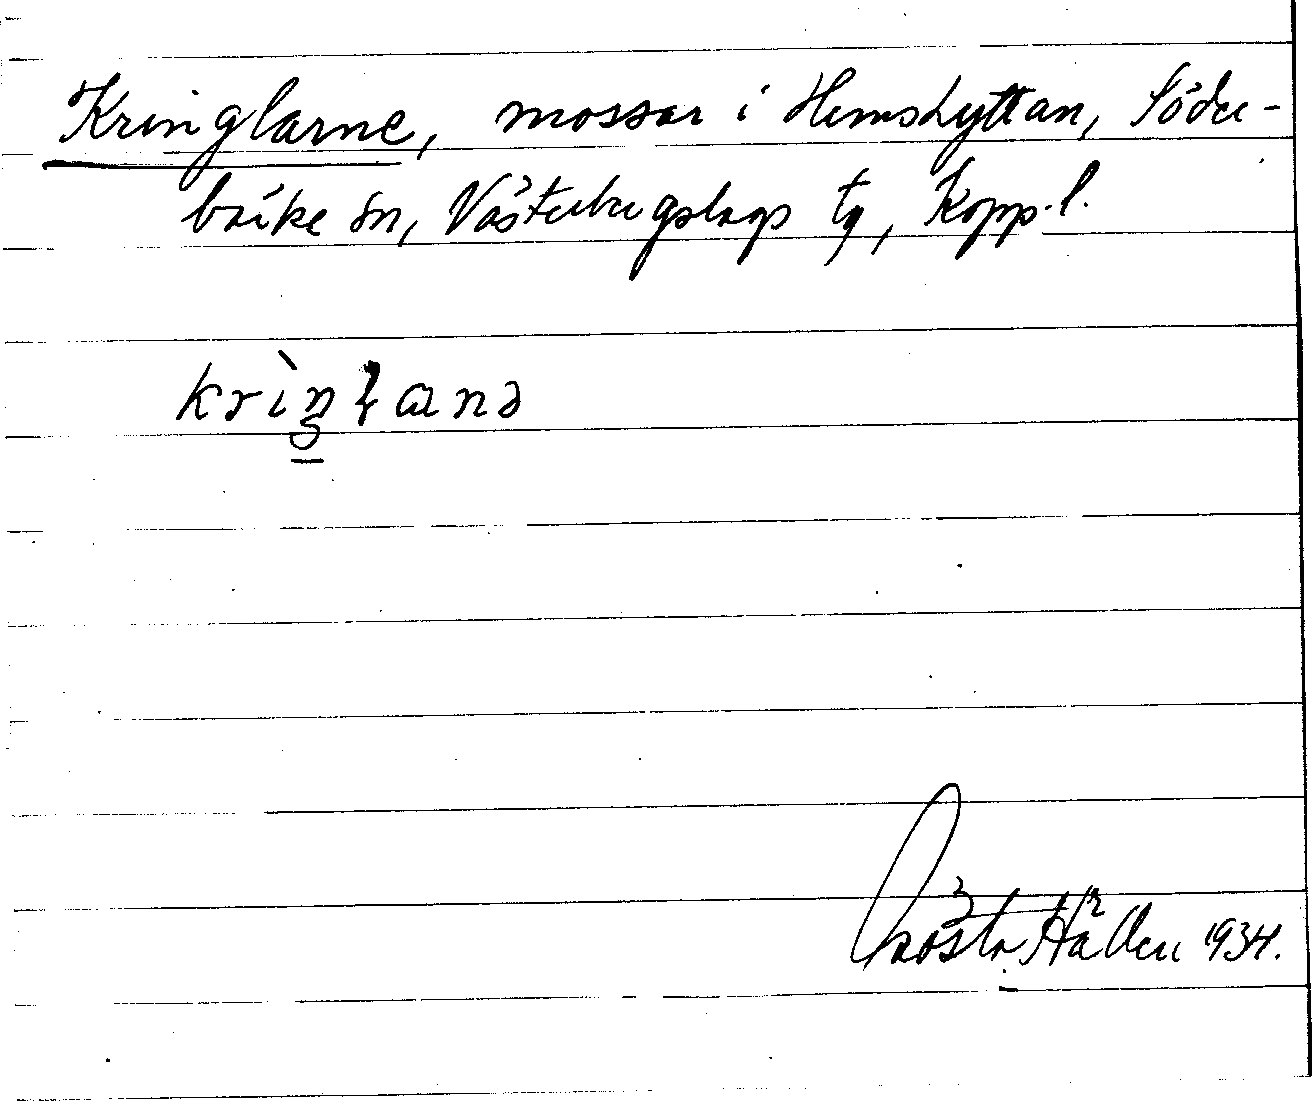 Kringlarne, mossar i Hemshyttan, Söder-
bärke sn, Västerbergslags tg, Kopp. l.
krìŋɽanə
Gösta Hådén 1934.